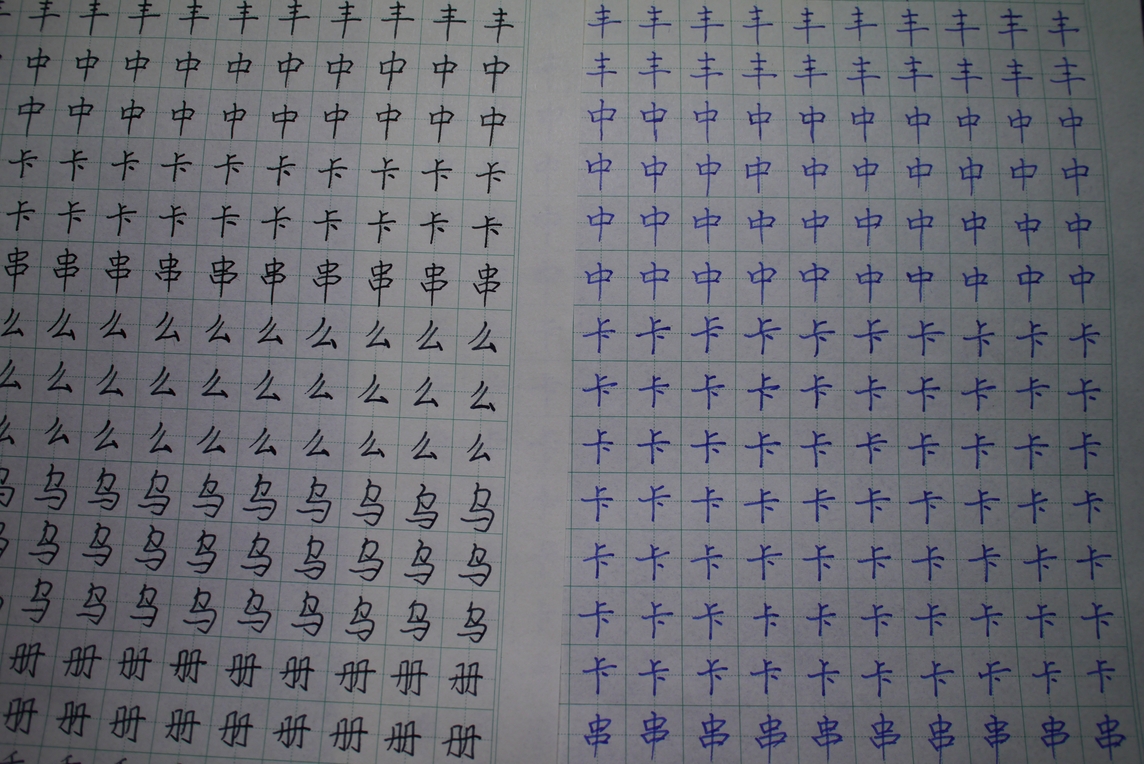 丰丰丰丰丰丰丰丰丰丰
中中中中中中中中中中
中中中中中中中中中中
卡卡卡卡卡卡卡卡卡卡
卡卡卡卡卡卡卡卡卡卡
串串串串串串串串串串
么么么么么么么么么么
么么么么么么么么么么
么么么么么么么么么么
乌乌乌乌乌乌乌乌乌乌
乌乌乌乌乌乌乌乌乌
乌乌乌乌乌乌乌乌乌
册册册册册册册册册
册册册册册册册册册
丰丰丰丰丰丰丰丰丰丰
丰丰丰丰丰丰丰丰丰丰
中中中中中中中中中中
中中中中中中中中中中
中中中中中中中中中中
中中中中中中中中中中
卡卡卡卡卡卡卡卡卡卡
卡卡卡卡卡卡卡卡卡卡
卡卡卡卡卡卡卡卡卡卡
卡卡卡卡卡卡卡卡卡卡
卡卡卡卡卡卡卡卡卡卡
卡卡卡卡卡卡卡卡卡卡
卡卡卡卡卡卡卡卡卡卡
串串串串串串串串串串